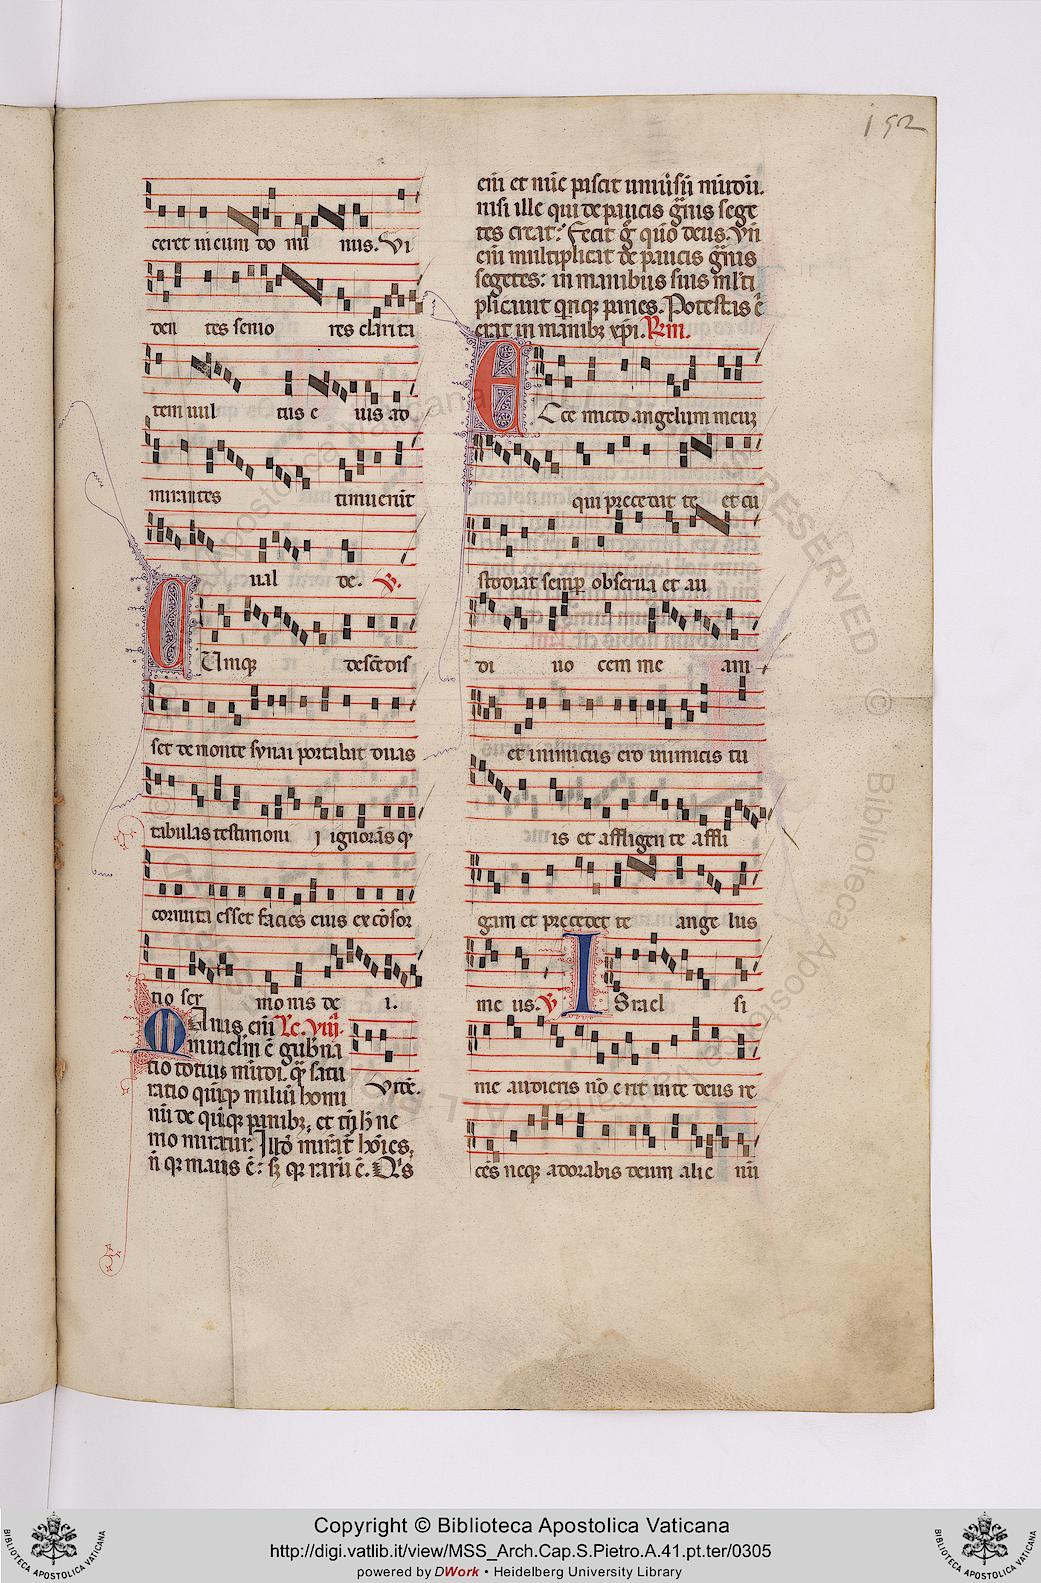 192
ceret in eum do mi nus. Vi
den tes senio res clarita
tem uul tus e ius ad
mirantes timuerūt
ual de. ℣.
Cumqꝫ descēdis
set de monte synai portabat duas
tabulas testimoni j ignorās qͫ
cornuta esset facies eius ex cōsor
tio ser monis de i.
Maius eni᷑ Lc̄. viij.
miraclm̄ ē gub̄na
tio totius mūdi. qͣ satu
ratio quīqꝫ miliū homi
nū de quīqꝫ panibꝫ. et tn̄ h̄ ne
mo miratur. Illđ mirāt̄ hoīes,
n̄ qꝛ maius ē: sꝫ qꝛ rarū ē. Qͥs
Vidē.
eni᷑ et nūc pascit uniūsū mūdū.
nisi ille qui de paucis gͣnis sege
tes creat: Fecit g̊ quo deus. Vn̄
eni᷑ multiplicat de paucis gͣnis
segetes: in manibus suis ml̄ti
plicauit qnqꝫ panes. Potestas ē
erat in manibꝫ xp̄i. Rm̄.
Ecce micto angelum meuꝫ
qui precedat te et cu
stodiat semꝑ obserua et au
di uo cem me am
et inimicus ero inimicis tu
is et affligen te affli
gam et precedet te ange lus
me us. ℣ Israel si
me audieris nō e rit in te deus re
cēs neqꝫ adorabis deum alie nū
Copyright © Biblioteca Apostolica Vaticana
http://digi.vatlib.it/view/MSS_Arch.Cap.S.Pietro.A.41.pt.ter/0305
powered by DWork • Heidelberg University Library
BIBLIOTECA APOSTOLICA VATICANA
BIBLIOTECA APOSTOLICA VATICANA